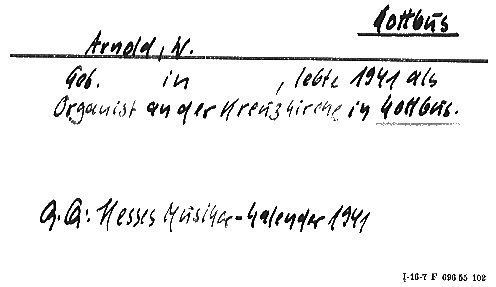 Cottbus
Arnold, W.
Geb. in , lebte 1941 als
Organist an der Kreuzkirche in Cottbus.
Q.Q.: Hesses Musiker-Kalender 1941
I-16-7 F 696 55 102